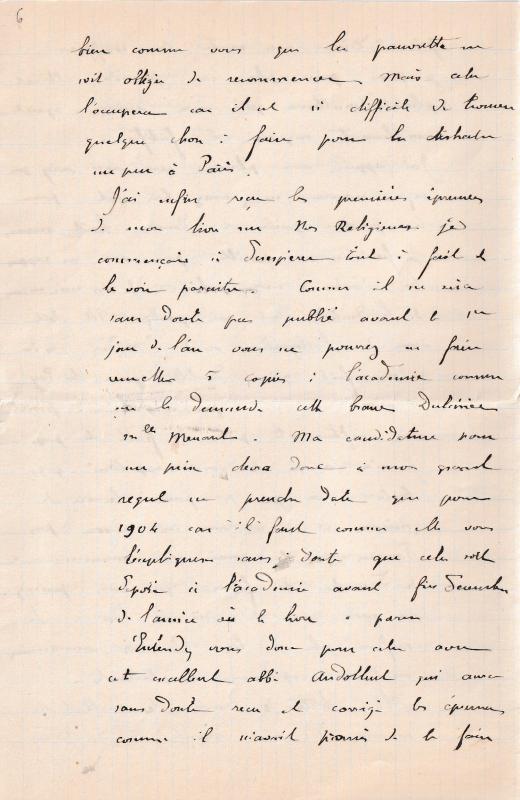 6
bien comme vous que la pauvrette ne
soit obligée de recommencer. Mais cela
l'occupera car il est si difficile de trouver
quelque chose à faire pour la distraire
un peu à Paris.
J'ai enfin reçu les premières épreuves
de mon livre sur Nos Religieuses. je
commençais à désespérer tout à fait de
le voir paraitre. Comme il ne sera
sans doute pas publié avant le 1er
jour de l'an vous ne pouvez en faire
remettre 5 copies à l'académie comme
le demande cette brave Dulcinée
Mlle Menant. Ma candidature pour
un prix devra donc à mon grand
regret ne prendre date que pour
1904 car il faut comme elle vous
l'expliquera sans doute que cela soit
déposé à l'académie avant fin Décembre
de l'année où le livre a paru
Entendez vous donc pour cela avec
cet excellent abbé qui aura
sans doute reçu et corrigé les épreuves
comme il m'avait promis de le faire